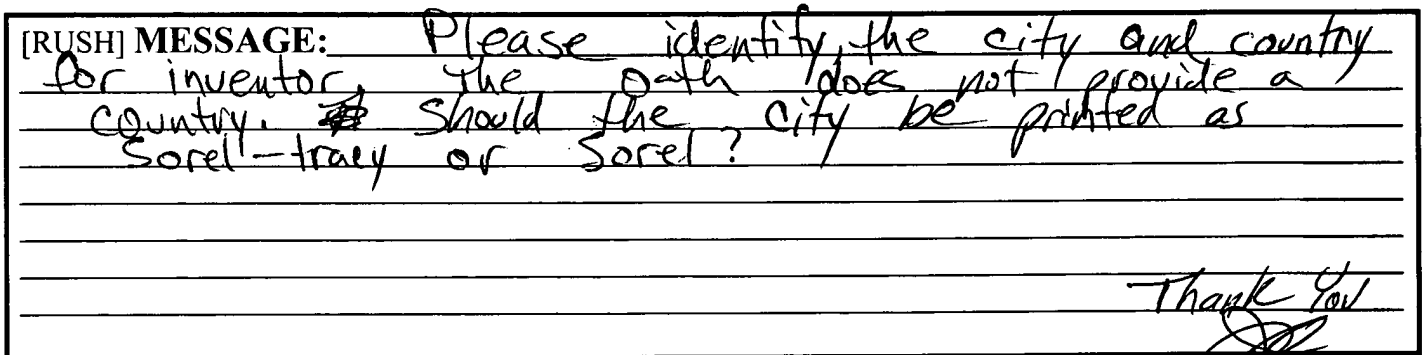 [RUSH] MESSAGE: Please identify the city and country
for inventor. The oath does not provide a
country. Should the City be printed as
Sorel-tracy or Sorel?
Thank You